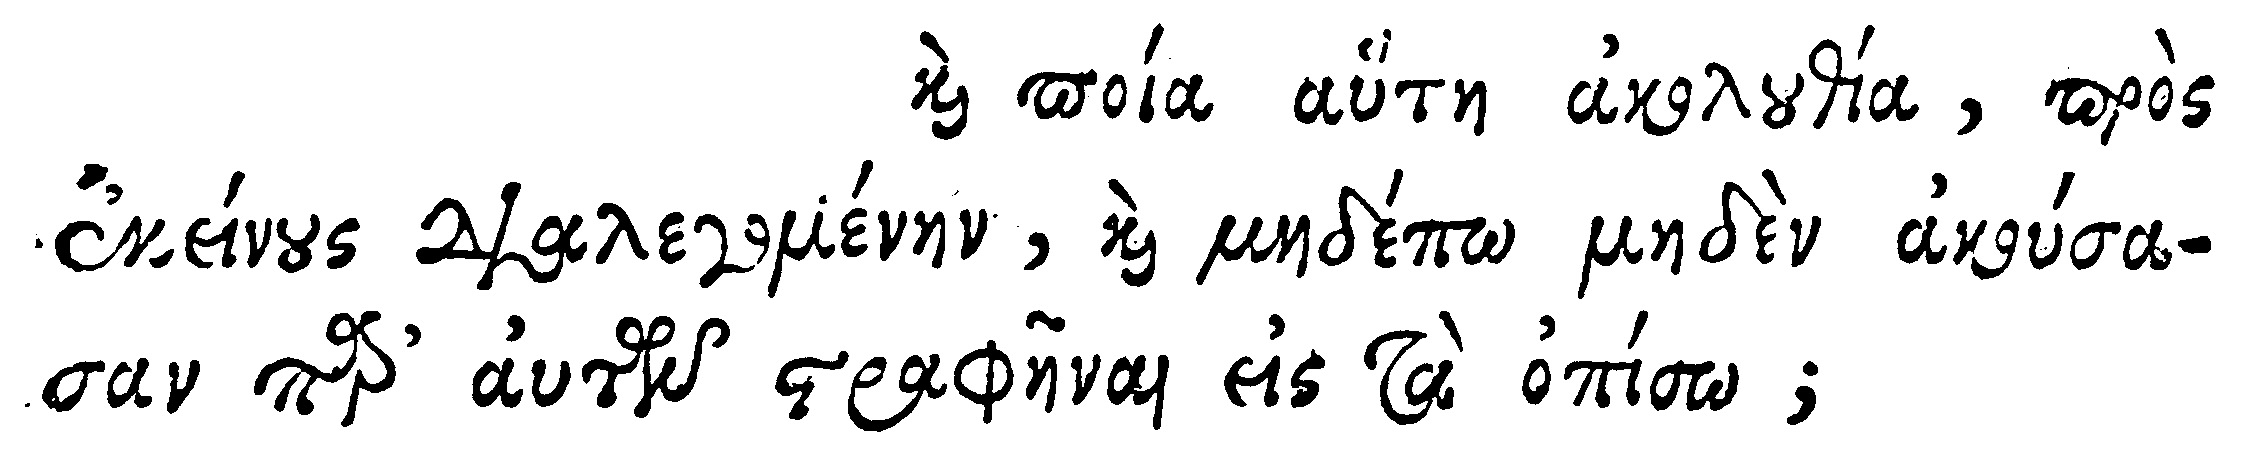 καὶ ποία αὕτη ἀκολουθία, πρὸς
ἐκείνους διαλεγομένην, καὶ μηδέπω μηδὲν ἀκούσα-
σαν παρ’ αὐτῶν στραφῆναι εἰς τὰ ὀπίσω;